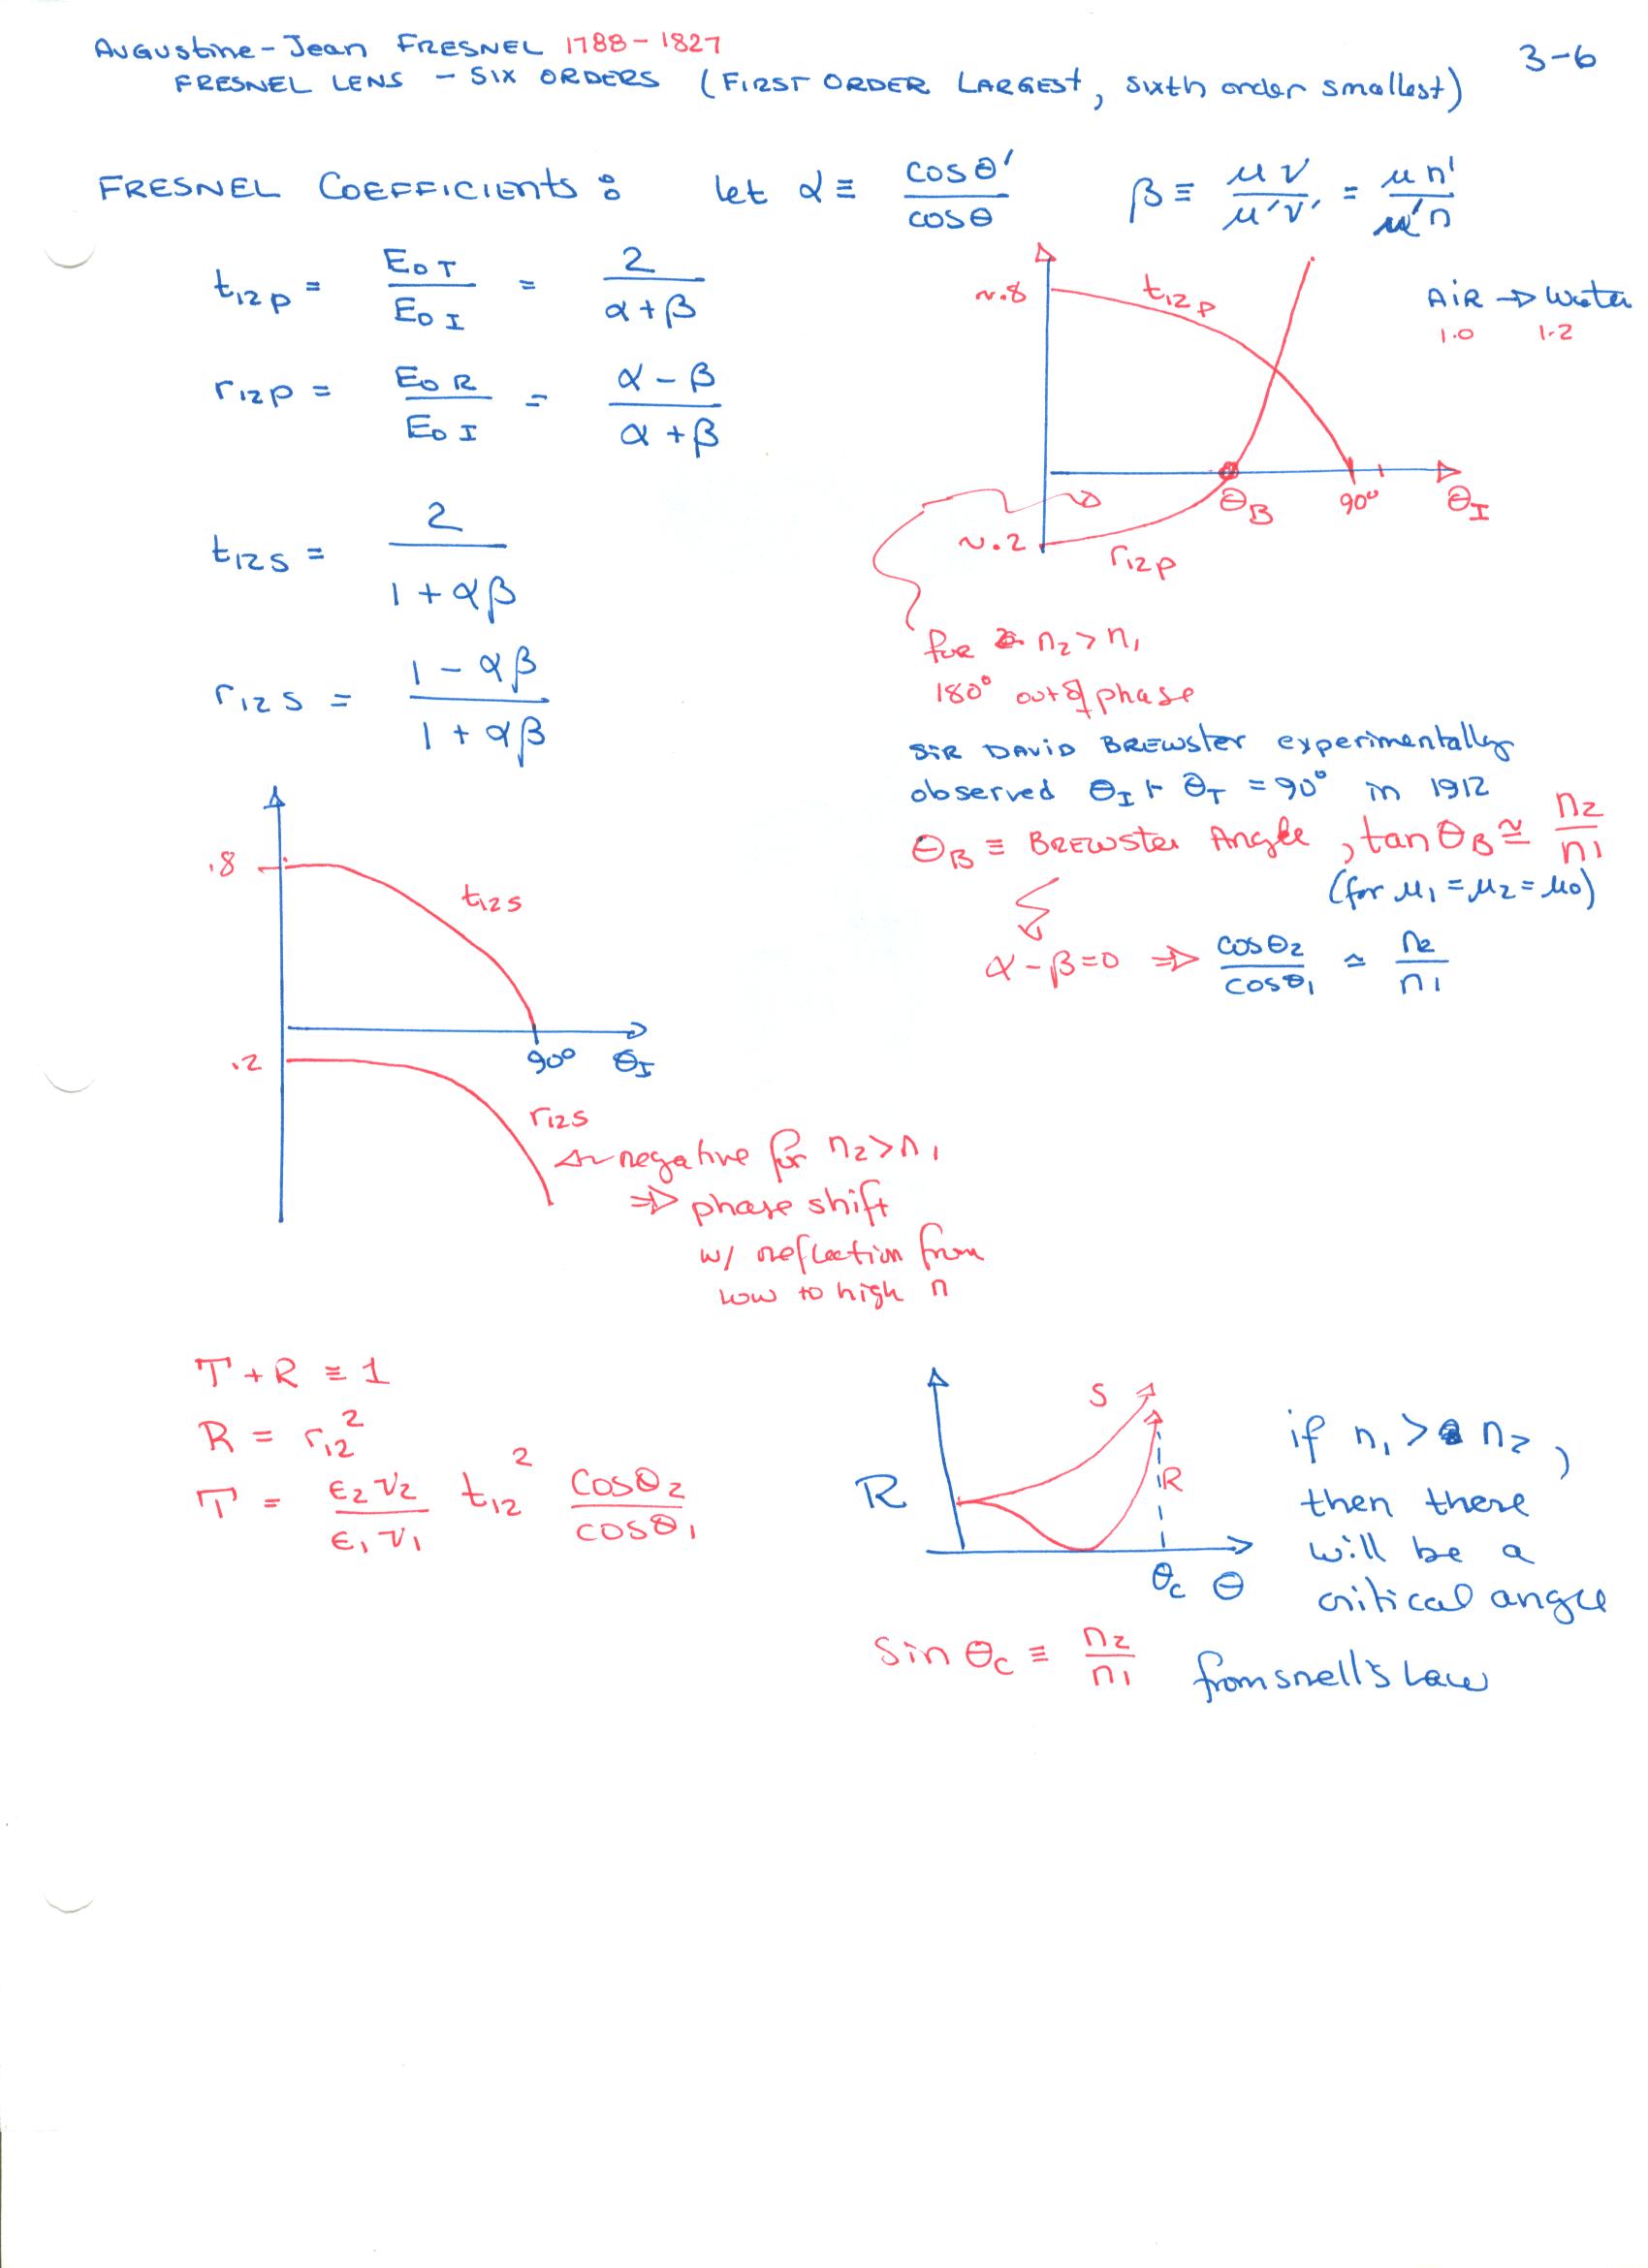 3-6
Augustine-Jean FRESNEL 1788-1827
FRESNEL LENS - SIX ORDERS (FIRST ORDER LARGEST, sixth order smallest)
FRESNEL COEFFICIENTS: let α ≡ cosθ'/cosθ β ≡ μv/μ'v' = μn'/μ'n
t12p = E0T/E0I = 2/(α+β)
r12p = E0R/E0I = (α-β)/(α+β)
t12s = 2/(1+αβ)
r12s = (1-αβ)/(1+αβ)
~.8
t12p
AIR → Water
1.0 1.2
θB 90° θI
~.2
r12p
for n2 > n1
180° out of phase
SIR DAVID BREWSTER experimentally
observed θI + θT = 90° in 1912
θB ≡ BREWSTER Angle, tanθB ≅ n2/n1
(for μ1 = μ2 = μ0)
α-β=0 ⇒ cosθ2/cosθ1 ≃ n2/n1
.8
t12s
90° θI
.2
r12s
negative for n2>n1
⇒ phase shift
w/ reflection from
low to high n
T + R ≡ 1
R = r12²
T = ε2v2/ε1v1 t12² cosθ2/cosθ1
S
R
R
θc θ
if n1 > n2,
then there
will be a
critical angle
Sin θc ≡ n2/n1 from snell's Law